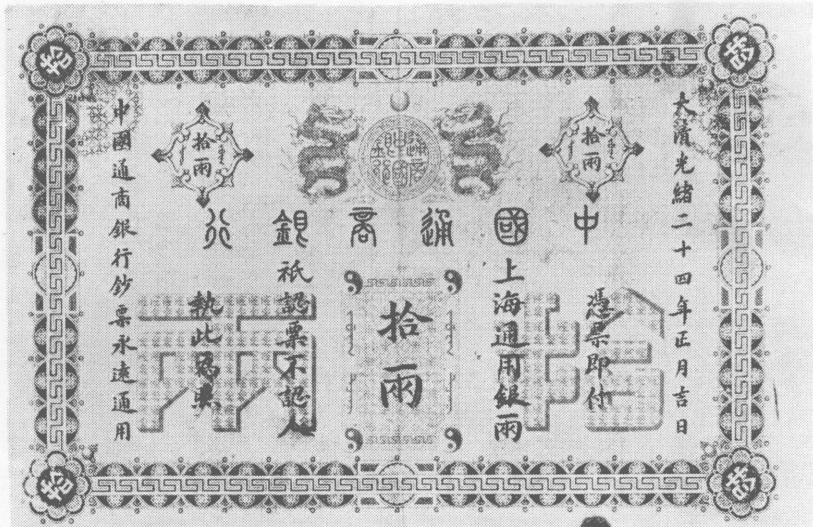 大清光緒二十四年正月吉日
拾兩
拾兩
中國通商銀行
憑票即付
上海通用銀兩
拾兩
祇認票不認人
執此爲照
拾兩
中國通商銀行鈔票永遠通用